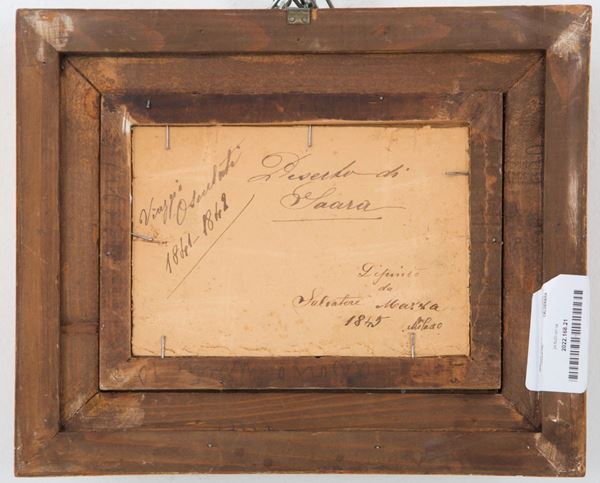 Viaggio
Osculati
1841-1842
Deserto di
Saara
Dipinto
da
Salvatore Mazza
1845 Milano
2022.168.21